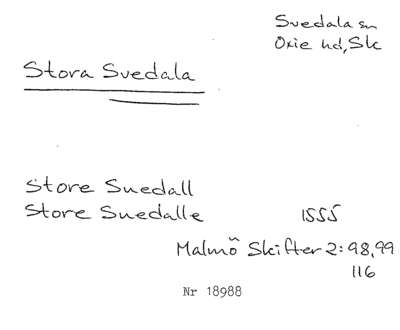 Svedala sn
Oxie hd, Sk
Stora Svedala
Store Suedall
Store Suedalle 1555
Malmö Skifter 2:98,99
116
Nr 18988